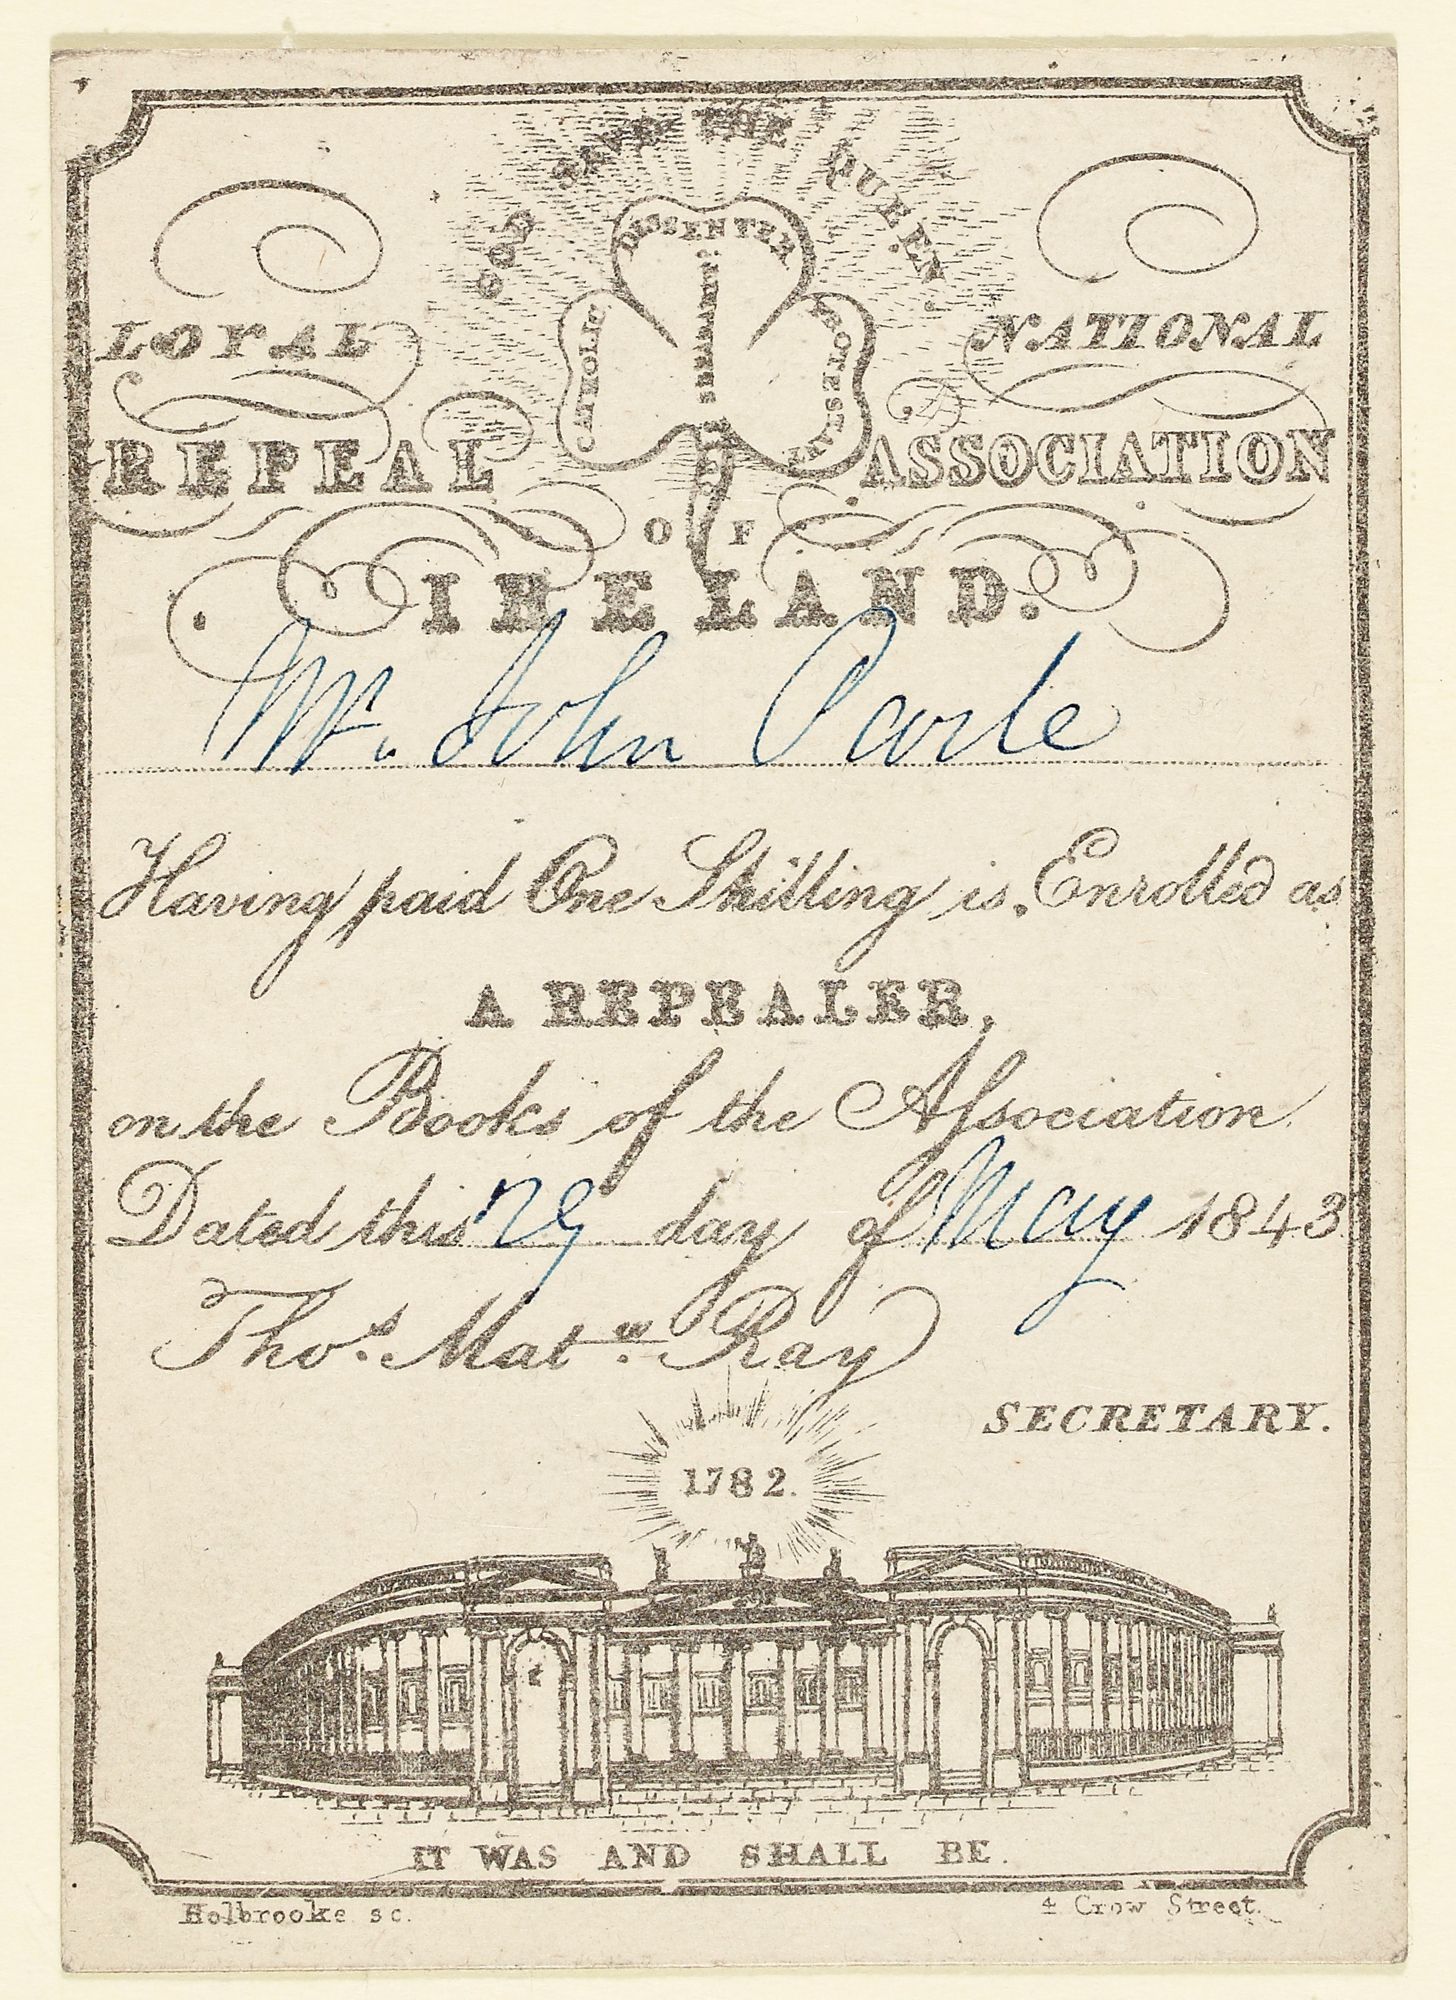 GOD SAVE THE QUEEN.
DISSENTER
CATHOLIC
PROTESTANT
LOYAL NATIONAL
REPEAL ASSOCIATION
OF
IRELAND.
Mr. John Carle
Having paid One Shilling is Enrolled as
A REPEALER,
on the Books of the Association
Dated this 29 day of May 1843
Thos. Matw. Ray
SECRETARY.
1782.
IT WAS AND SHALL BE.
Holbrooke sc. 4 Crow Street.